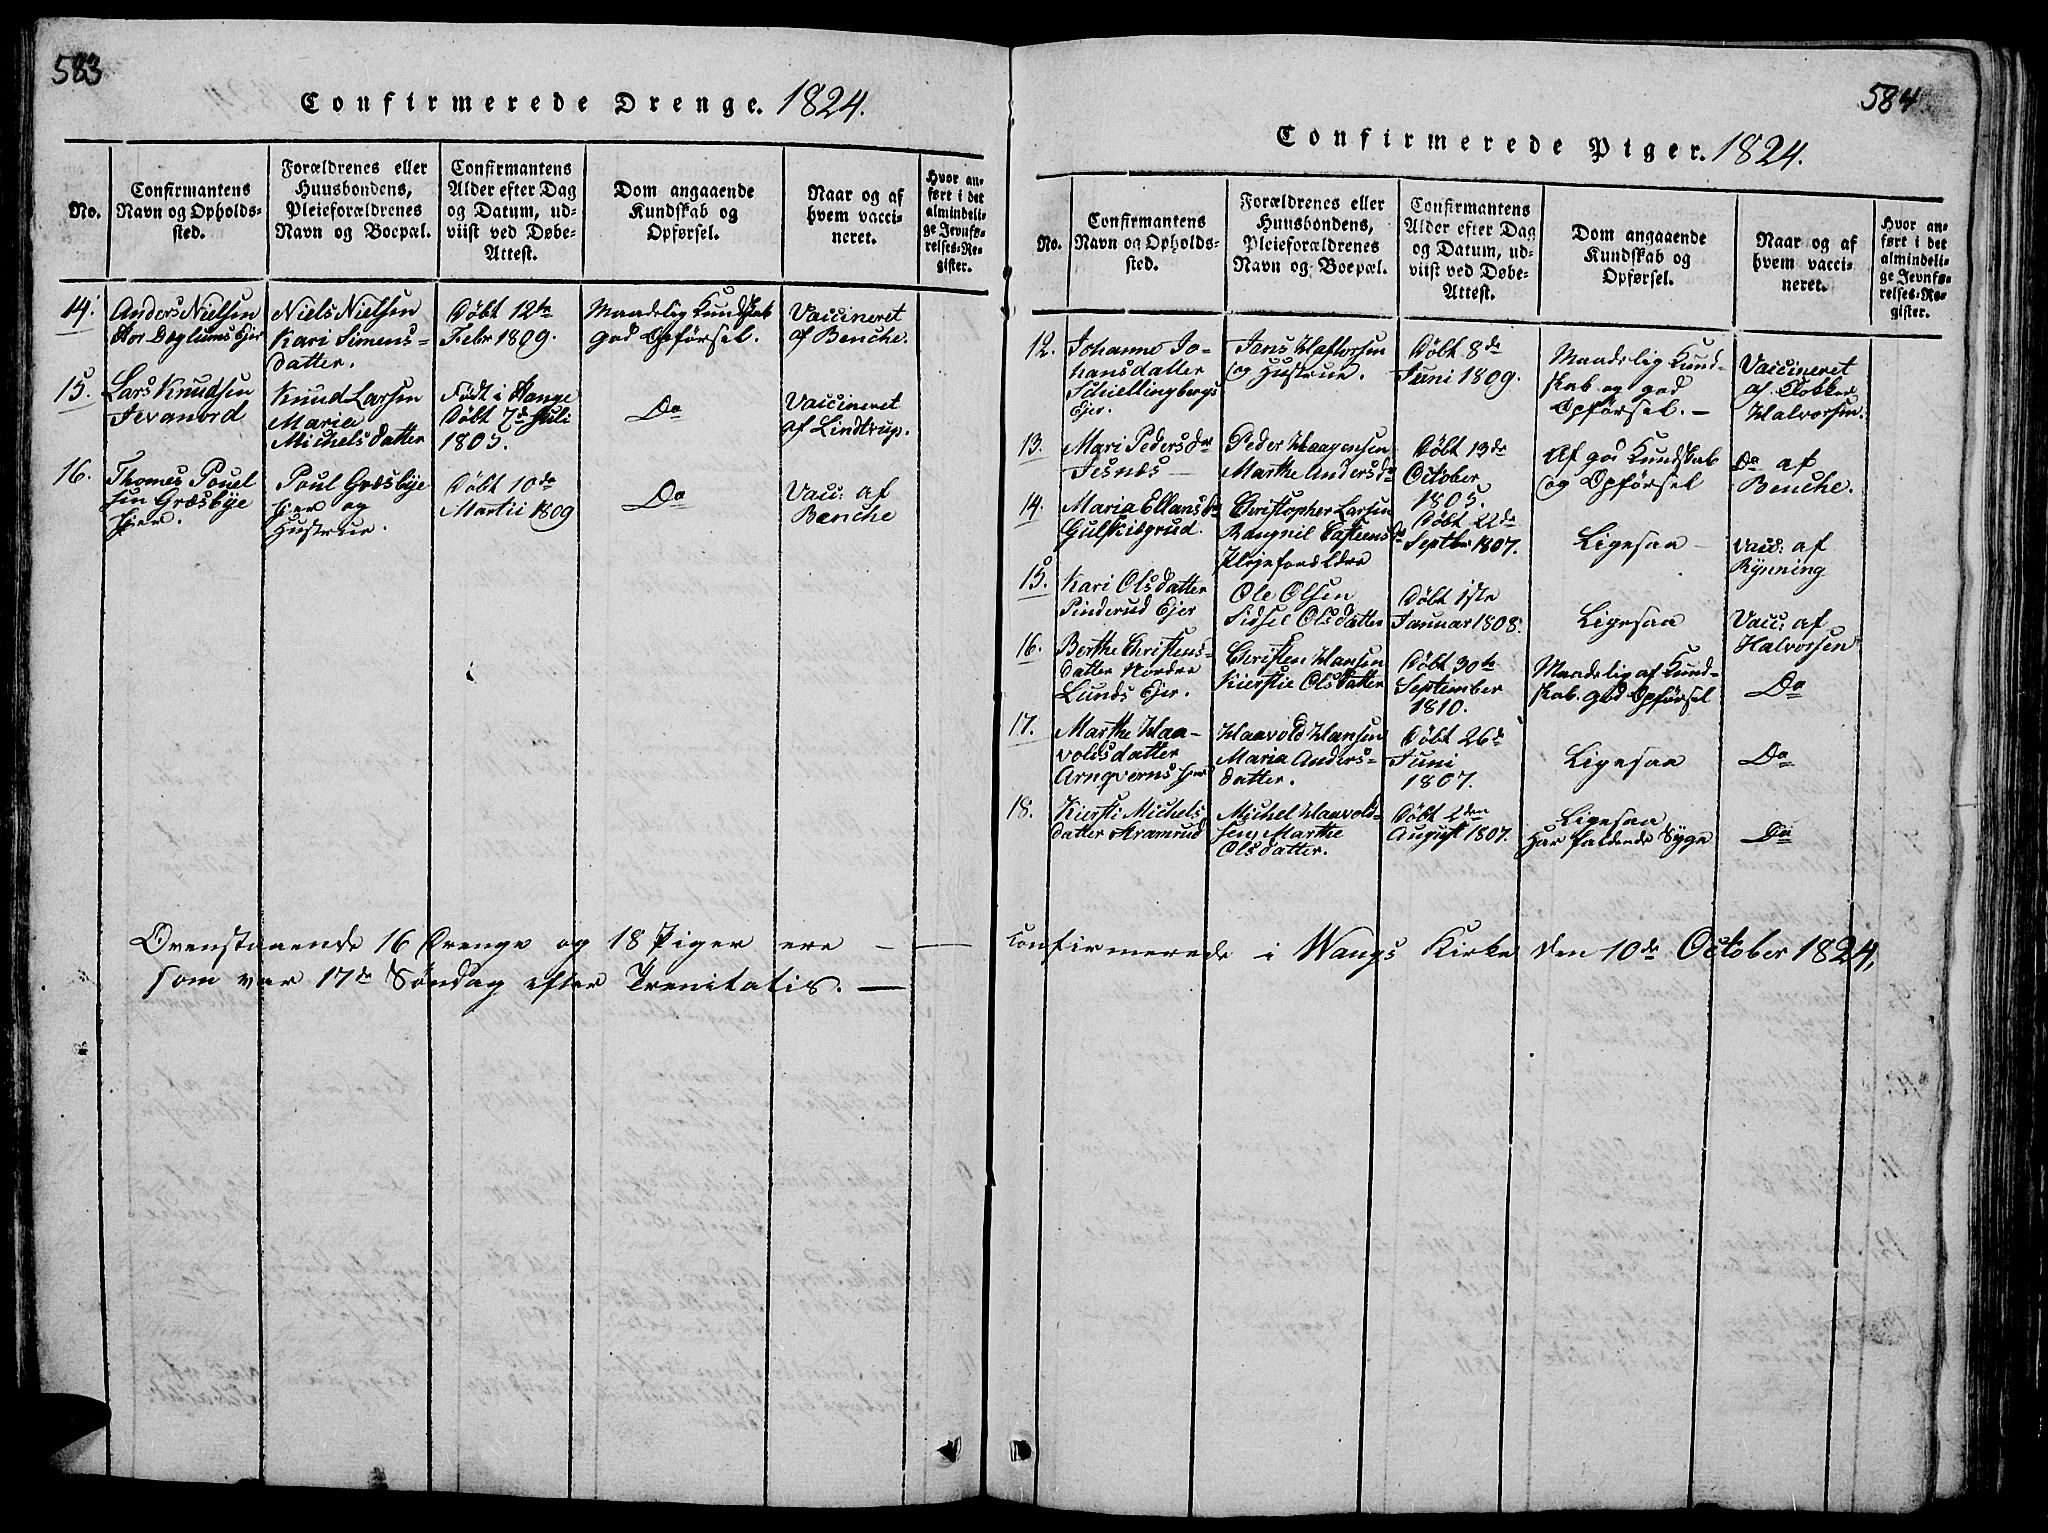 583
Confirmerede Drenge. 1824.
No.
Confirmantens
Navn og Opholds-
sted.
Forældrenes eller
Huusbondens,
Pleieforældrenes
Navn og Boepæl.
Confirmantens
Alder efter Dag
og Datum, ud-
viist ved Døbe-
Attest.
Dom angaaende
Kundskab og
Opførsel.
Naar og af
hvem vacci-
neret.
Hvor an-
ført i det
almindeli-
ge Jevnfø-
relses-Re-
gister.
14.
Anders Nielsen
Stor Deglums Ejer
Niels Nielsen
Kari Simens-
datter.
Døbt 12te
Febr 1809.
Maadelig Kundskab
god Opførsel.
Vaccineret
af Benche.
15.
Lars Knudsen
Jevanord
Knud Larsen
Maria
Michelsdatter
Født i Stange
Døbt 7de Juli
1805.
Do
Vaccineret
af Lindtrup.
16.
Thomes Pouel
sen Græsbye
Ejer.
Poul Græsbye
Ejer og
Hustrue.
Døbt 10de
Martii 1809
Do
Vacc: af
Benche
Ovenstaaende 16 Drenge og 18 Piger ere —
som var 17de Søndag efter Trenitatis. —
584
Confirmerede Piger. 1824.
No.
Confirmantens
Navn og Opholds-
sted.
Forældrenes eller
Huusbondens,
Pleieforældrenes
Navn og Boepæl.
Confirmantens
Alder efter Dag
og Datum, ud-
viist ved Døbe-
Attest.
Dom angaaende
Kundskab og
Opførsel.
Naar og af
hvem vacci-
neret.
Hvor an-
ført i det
almindeli-
ge Jevnfø-
relses-Re-
gister.
12.
Johanne Jo-
hansdatter
Schiellingbergs
Ejer.
Jens Haftorsen
og Hustrue.
Døbt 8de
Juni 1809.
Maadelig Kund-
skab og god
Opførsel. —
Vaccineret
af Klokker
Halvorsen.
13.
Mari Pedersdr
Jesnæs —
Peder Haagensen
Marthe Andersdr
Døbt 13de
October
1805.
Af god Kundskab
og Opførsel
Do af
Benche.
14.
Maria Ellansdr
Gulskilsrud.
Christopher Larsen
Rangnil Eastensdr
Plejeforældre
Døbt 22de
Septbr 1807.
Ligesaa —
Vacc: af
Rynning
15.
Kari Olsdatter
Pinderud Ejer
Ole Olsen
Sidsel Olsdatter
Døbt 1ste
Januar 1808.
Ligesaa
Vacc: af
Halvorsen
16.
Berthe Christens-
datter Nordre
Lunds Ejer.
Christen Hansen
Kierstie Olsdatter
Døbt 30te
September
1810.
Maadelig af Kund-
skab. god Opførsel
Do
17.
Marthe Haa-
voldsdatter
Arnqverns Ejer
Haavold Hansen
Maria Anders-
datter.
Døbt 26de
Juni
1807.
Ligesaa
Do
18.
Kiersti Michels
datter Aramrud
Michel Haavold-
sen, Marthe
Olsdatter.
Døbt 2den
August 1807.
Ligesaa
Har faldende Syge
Do
confirmerede i Wangs Kirke den 10de October 1824,